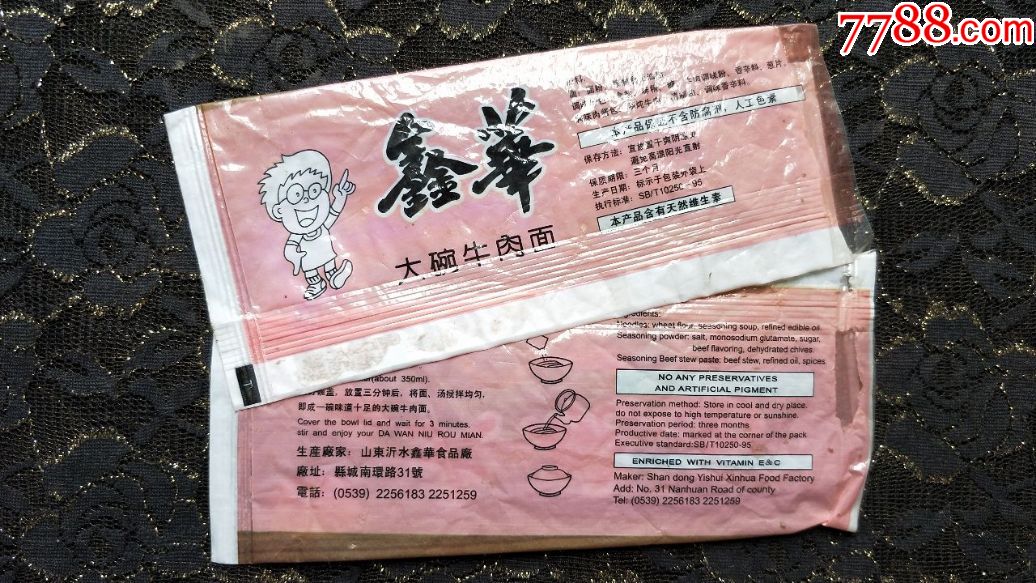 7788.com
鑫華
大碗牛肉面
本产品保证不含防腐剂，人工色素
保存方法：置地置干爽阴凉处
避免高温阳光直射
保质期限：三个月
生产日期：标示于包装外袋上
执行标准：SB/T10250-95
本产品含有天然维生素
Ingredients:
Noodles: wheat flour, seasoning soup, refined edible oil
Seasoning powder: salt, monosodium glutamate, sugar,
beef flavoring, dehydrated chives.
Seasoning Beef stew paste: beef stew, refined oil, spices.
NO ANY PRESERVATIVES
AND ARTIFICIAL PIGMENT
Preservation method: Store in cool and dry place.
do not expose to high temperature or sunshine.
Preservation period: three months
Productive date: marked at the corner of the pack
Executive standard:SB/T10250-95
ENRICHED WITH VITAMIN E&C
Maker: Shan dong Yishui Xinhua Food Factory
Add: No. 31 Nanhuan Road of county
Tel: (0539) 2256183 2251259
(about 350ml).
盖，放置三分钟后，将面、汤搅拌均匀，
即成一碗味道十足的大碗牛肉面。
Cover the bowl lid and wait for 3 minutes.
stir and enjoy your DA WAN NIU ROU MIAN.
生産廠家：山東沂水鑫華食品廠
廠址：縣城南環路31號
電話：(0539) 2256183 2251259